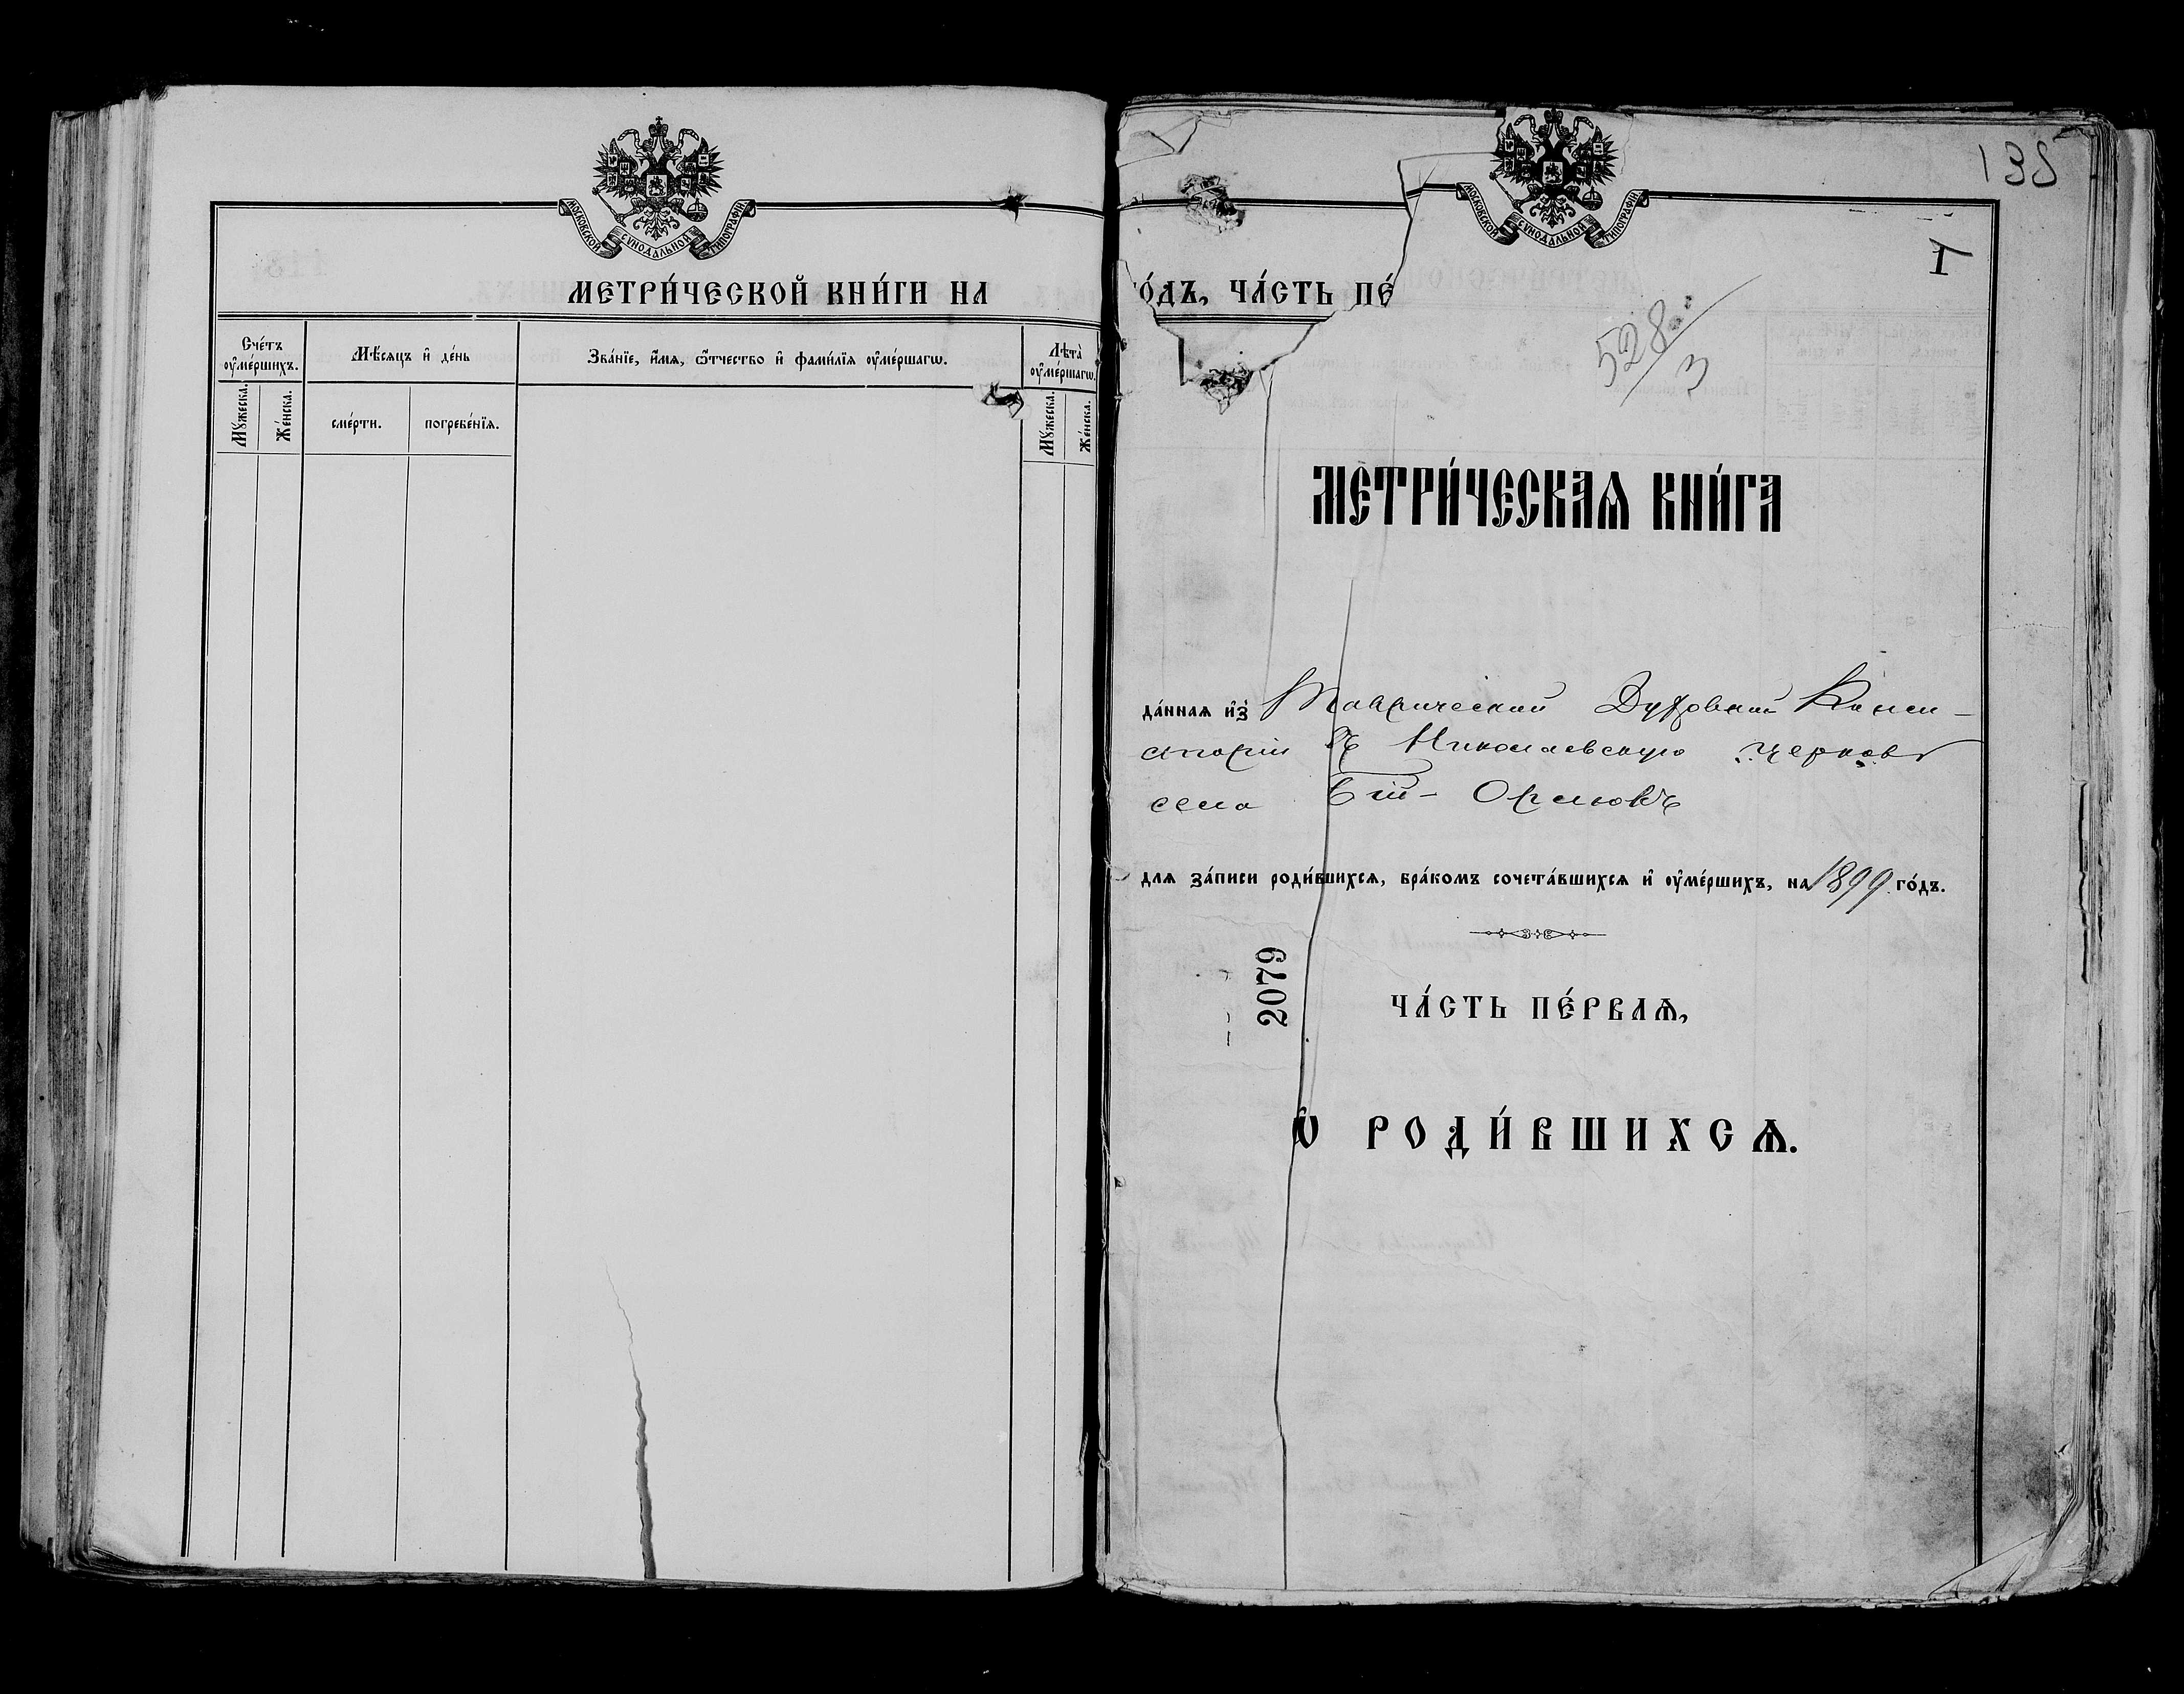 МОСКОВСКОЙ СѴНОДАЛЬНОЙ ТИПОГРАФІИ
МЕТРИ́ЧЕСКОЙ КНИ́ГИ НА
Сче́тъ ᲂу҆ме́ршихъ.
Мѣ́сѧцъ и҆ де́нь
Зва́нїе, и҆́мѧ, ѻ҆́тчество и҆ фами́лїѧ ᲂу҆ме́ршагѡ.
Лѣта̀ ᲂу҆ме́ршагѡ.
Мꙋ́жеска.
Же́нска.
сме́рти.
погребе́нїѧ.
Мꙋ́жеска.
Же́нска.
138
МОСКОВСКОЙ СѴНОДАЛЬНОЙ ТИПОГРАФІИ
I
О́ДЪ, ЧА́СТЬ ПЕ́
528/3
МЕТРИ́ЧЕСКАѦ КНИ́ГА
да́ннаѧ и҆з̾ Таврической Духовной Конси-
сторіи въ Николаевскую церковь
села Бій-Орлюкъ
длѧ за́писи роди́вшихсѧ, бра́комъ сочета́вшихсѧ и҆ ᲂу҆ме́ршихъ, на 1899 го́дъ.
2079
ЧА́СТЬ ПЕ́РВАѦ,
Ѡ҆ РОДИ́ВШИХСѦ.